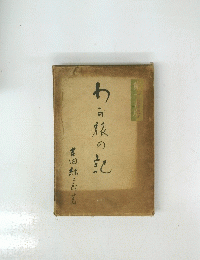 わが旅の記
吉田絃二郎著